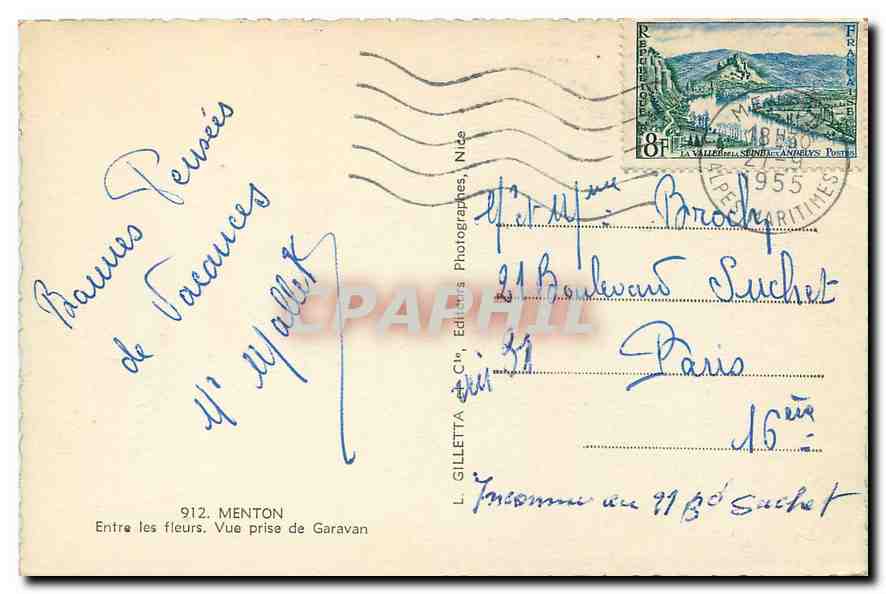 Bonnes Pensées
de Vacances
Mr Mallet
912. MENTON
Entre les fleurs. Vue prise de Garavan
L. GILLETTA et Cie, Editeurs Photographes, Nice
REPUBLIQUE
FRANCAISE
8F
LA VALLEE DE LA SEINE AUX ANDELYS POSTES
18H30
1955
ALPES MARITIMES
Mr et Mme Brochy
21 Boulevard Suchet
Paris
16ème
Inconnu au 91 Bd Suchet
CPAPHIL